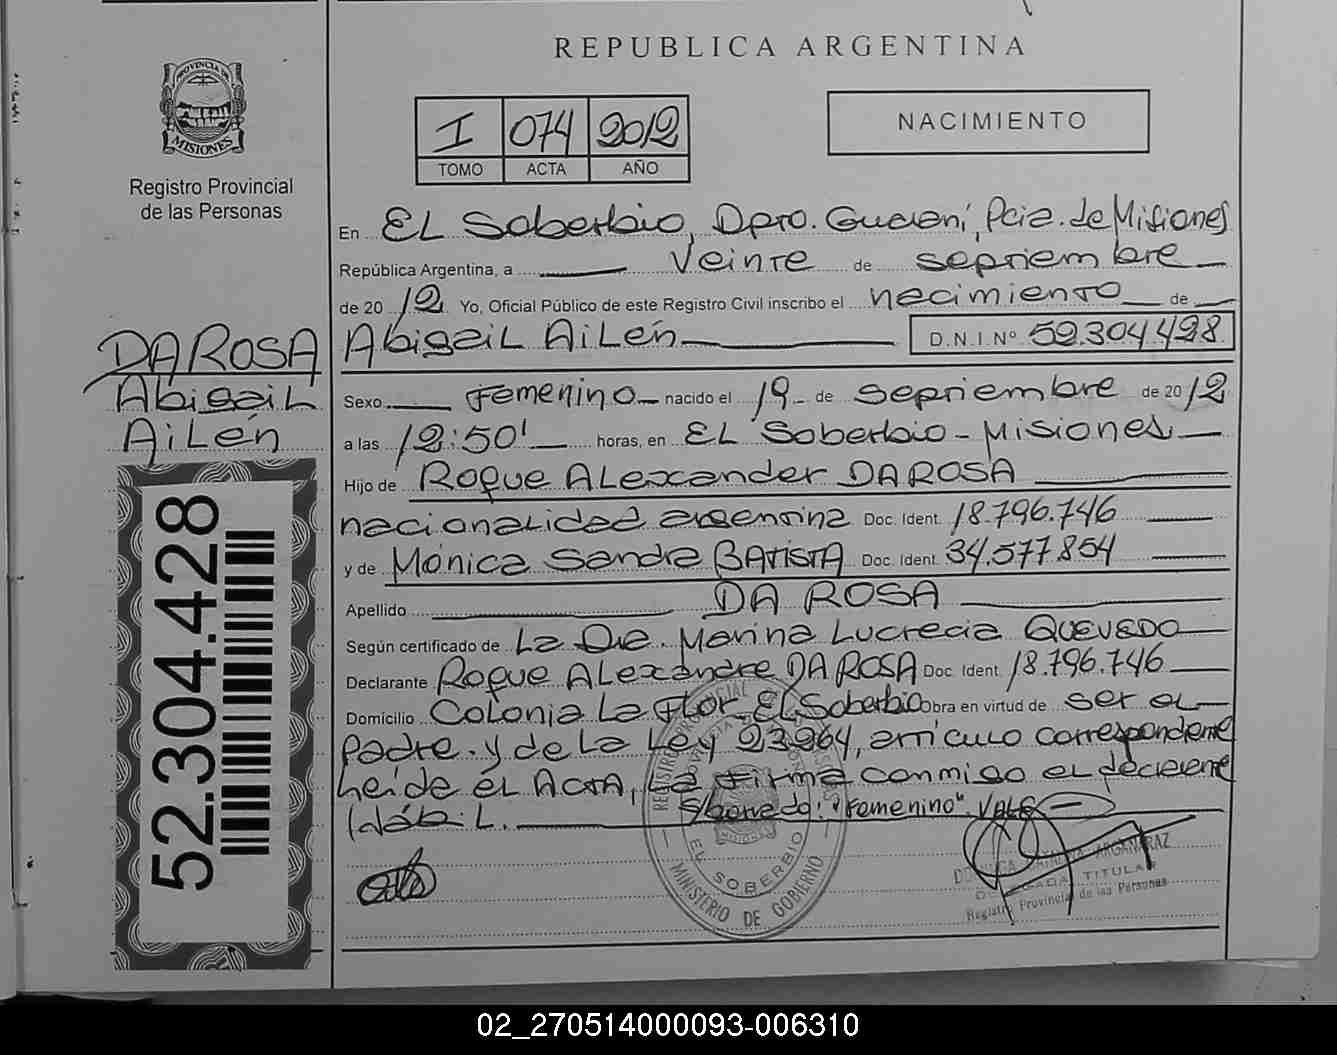 REPUBLICA ARGENTINA
PROVINCIA DE
MISIONES
Registro Provincial
de las Personas
I 074 2012
TOMO ACTA AÑO
NACIMIENTO
En El Soberbio, Dpto. Guaraní, Pcia. de Misiones
República Argentina, a Veinte de septiembre
de 2012 Yo, Oficial Público de este Registro Civil inscribo el nacimiento de
Abigail Ailén D.N.I.Nº 52.304.428
DA ROSA
Abigail
Ailén
Sexo Femenino nacido el 19 de septiembre de 2012
a las 12:50' horas, en El Soberbio - Misiones
Hijo de Roque Alexander DA ROSA
nacionalidad argentina Doc. Ident. 18.796.746
y de Mónica Sandra BATISTA Doc. Ident. 34.577.854
Apellido DA ROSA
Según certificado de La Dra. Marina Lucrecia QUEVEDO
Declarante Roque Alexandre DA ROSA Doc. Ident. 18.796.746
Domicilio Colonia La Flor El Soberbio Obra en virtud de ser el
Padre. y de la Ley 23264, artículo correspondiente
Leída el Acta, La firma conmigo el declarante
hábil. S/borrado: "Femenino". VALE
52.304.428
EL SOBERBIO
MINISTERIO DE GOBIERNO
ARGAÑARAZ
DELEGADA TITULAR
Registro Provincial de las Personas
02_270514000093-006310